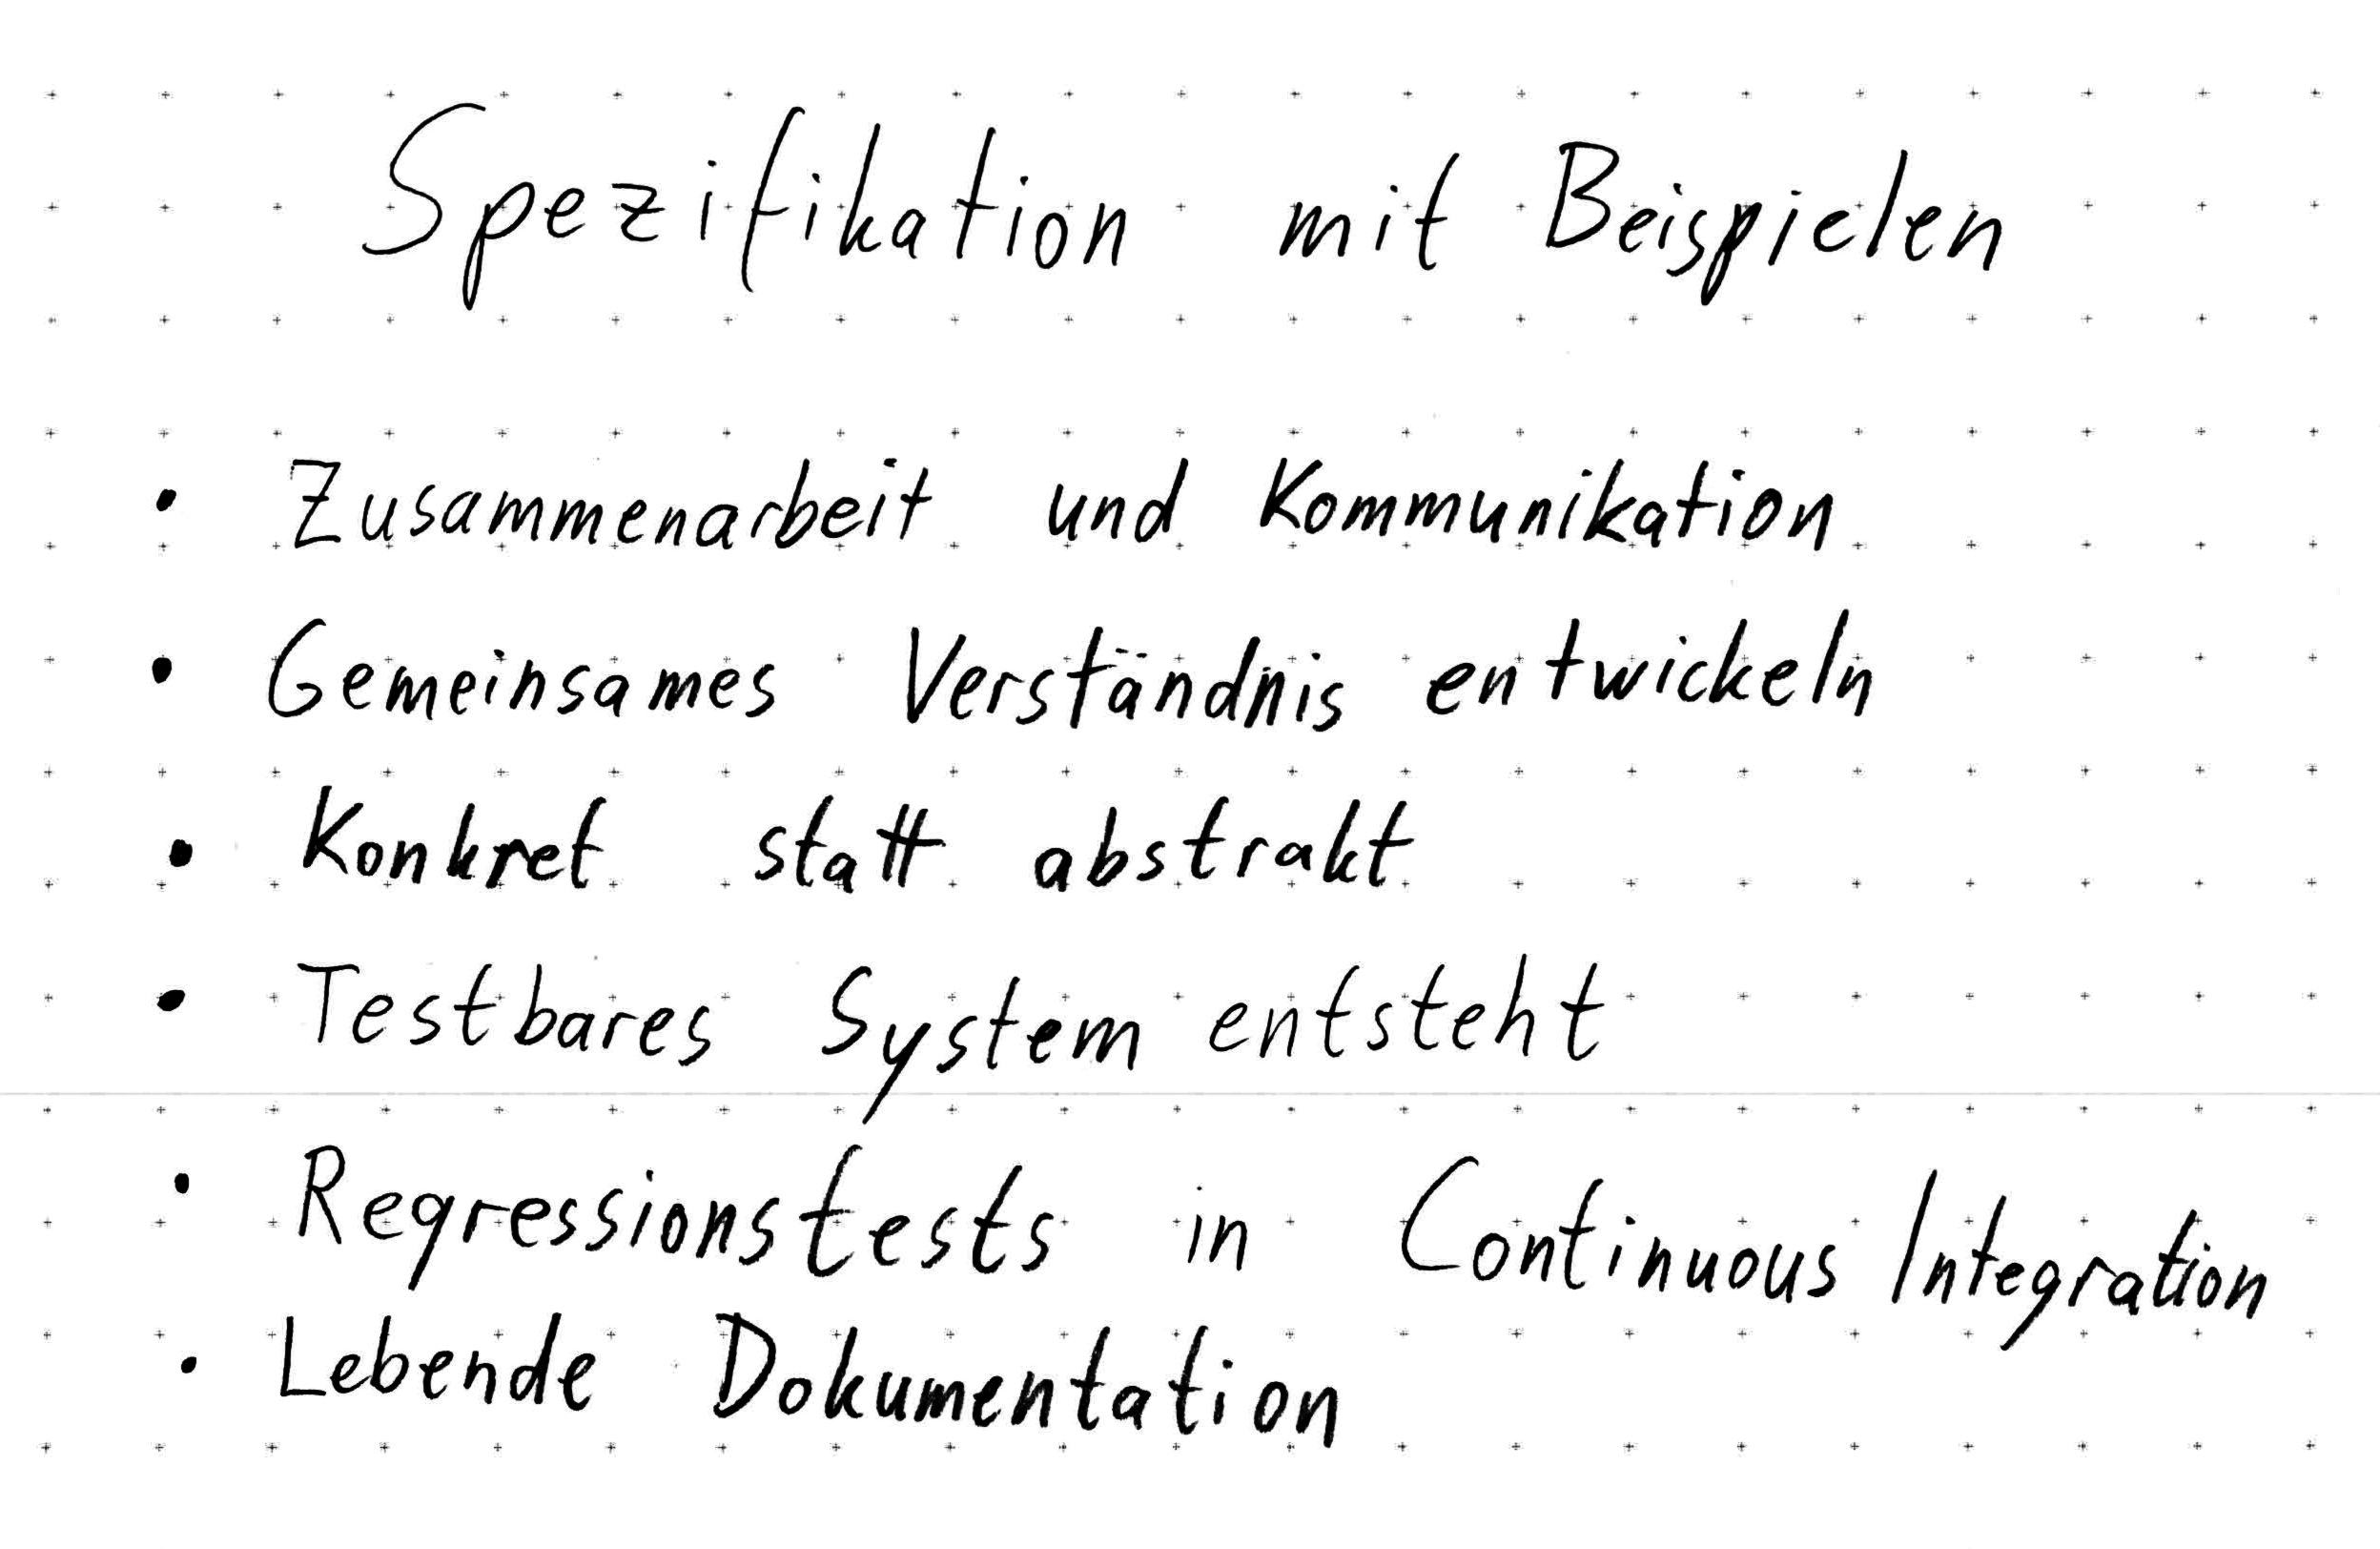 Spezifikation mit Beispielen
• Zusammenarbeit und Kommunikation
• Gemeinsames Verständnis entwickeln
• Konkret statt abstrakt
• Testbares System entsteht
• Regressionstests in Continuous Integration
• Lebende Dokumentation